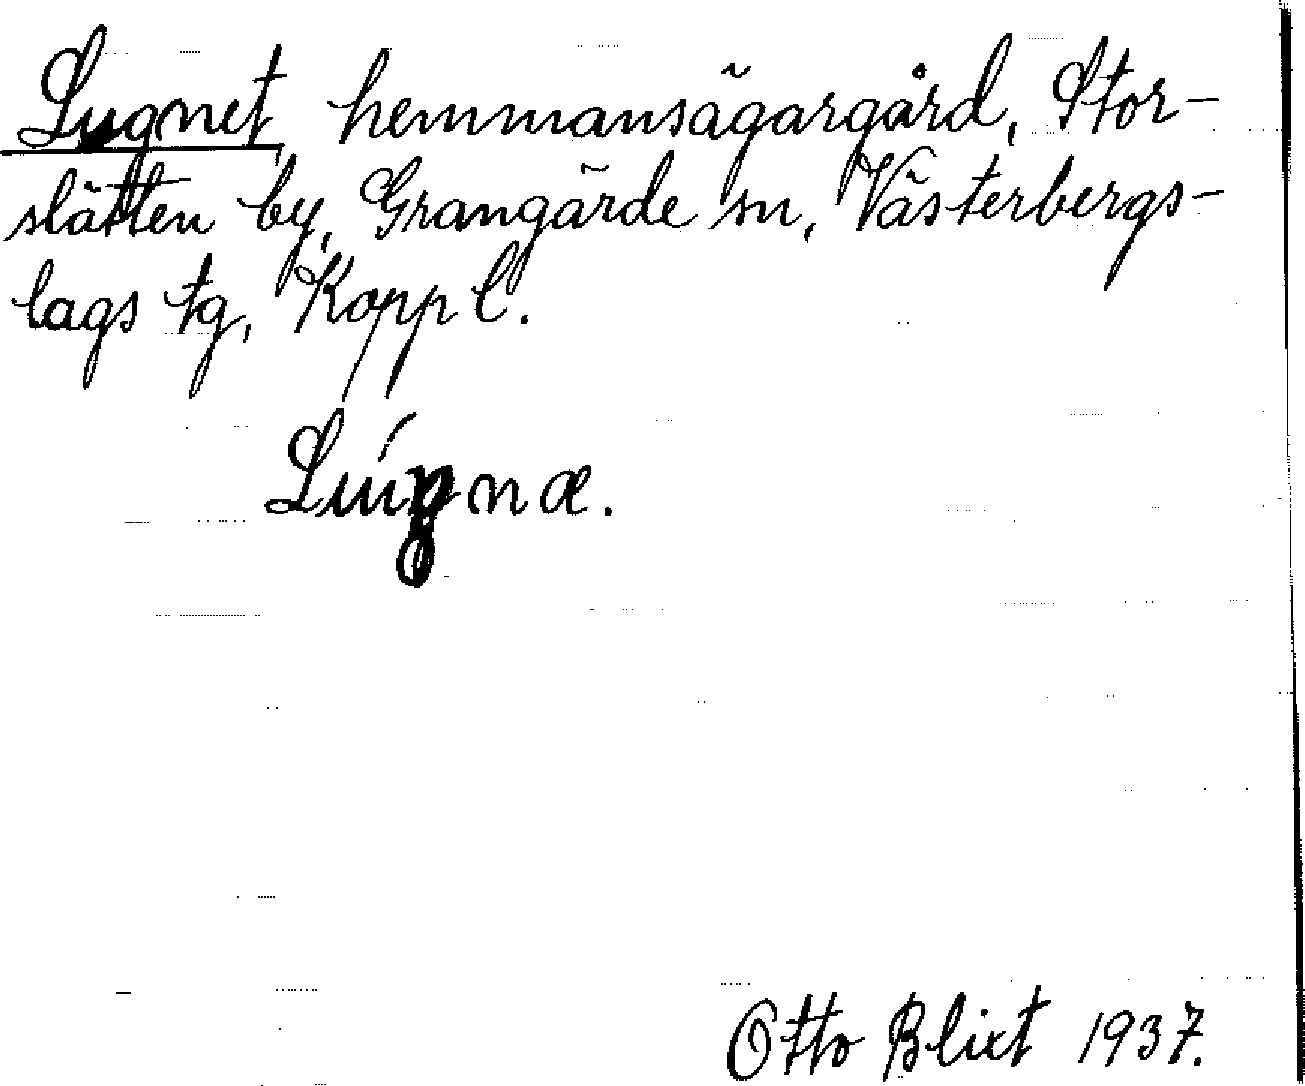 Lugnet, hemmansägargård, Stor-
slätten by, Grangärde sn, Västerbergs-
lags tg, Kopp l.
Lúgnæ.
Otto Blixt 1937.